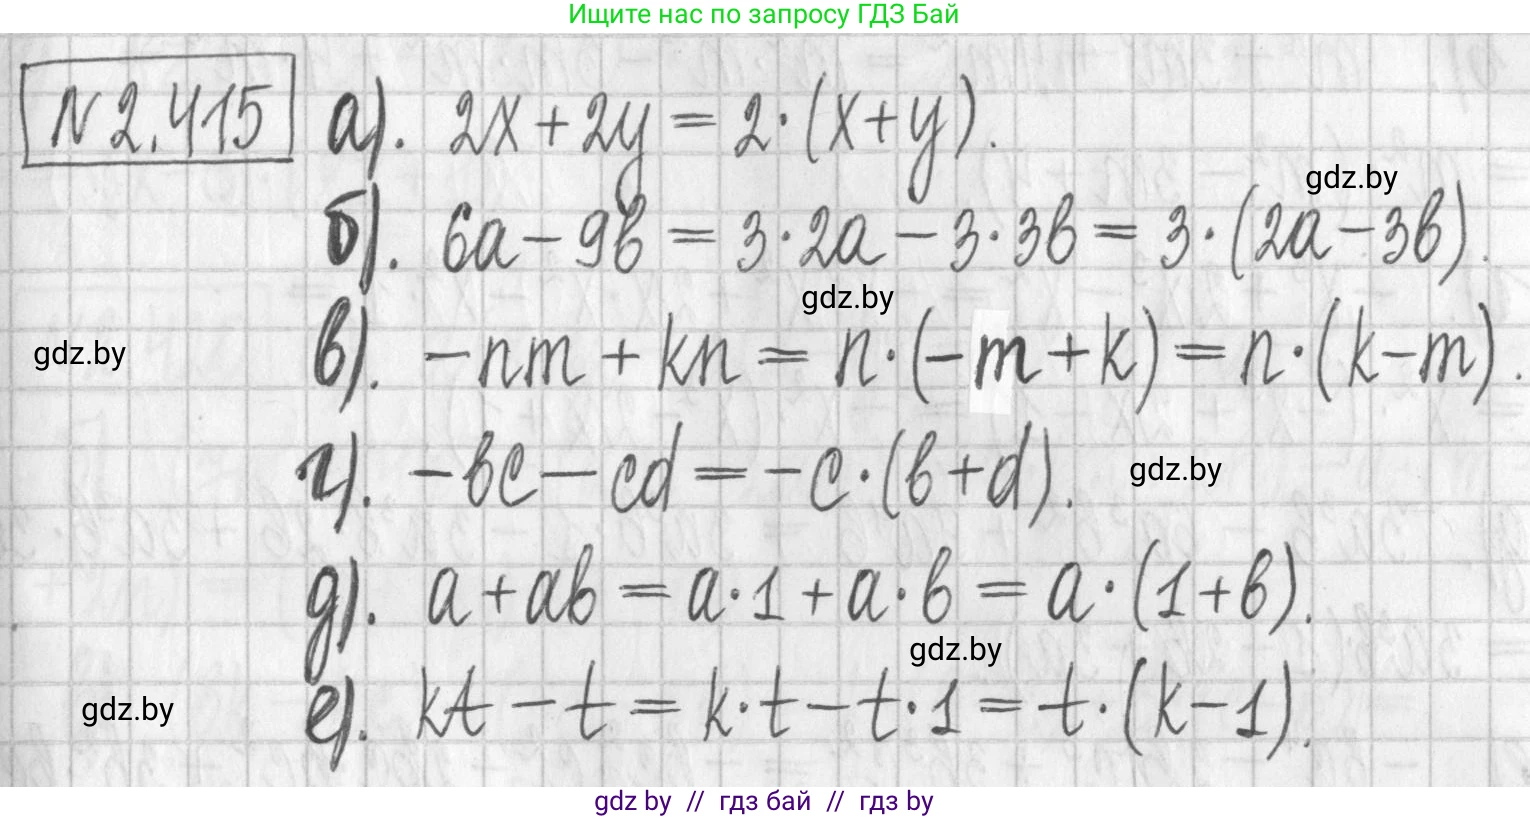 Ищите нас по запросу ГДЗ Бай
N 2.415 а). 2x + 2y = 2·(x+y).
gdz.by
б). 6a − 9b = 3·2a − 3·3b = 3·(2a−3b).
gdz.by
gdz.by
в). −nm + kn = n·(−m+k) = n·(k−m).
г). −bc − cd = −c·(b+d).
gdz.by
д). a + ab = a·1 + a·b = a·(1+b).
gdz.by
е). kt − t = k·t − t·1 = t·(k−1).
gdz.by
gdz by // гдз бай // гдз by